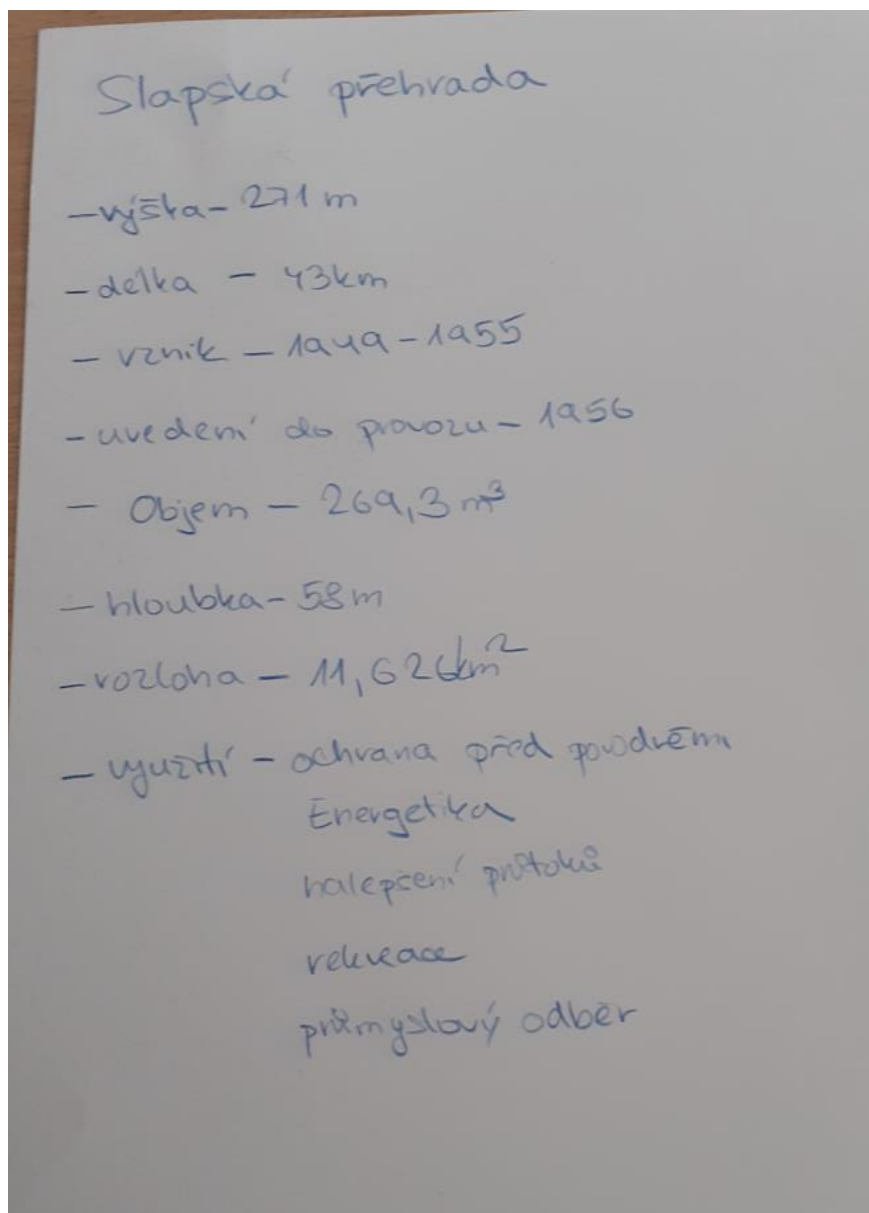 Slapská přehrada
- výška - 271 m
- délka - 43km
- vznik - 1949 - 1955
- uvedení do provozu - 1956
- Objem - 269,3 m³
- hloubka - 58m
- rozloha - 11,626km²
- využití - ochrana před povodněmi
Energetika
nalepšení průtoků
rekreace
průmyslový odběr